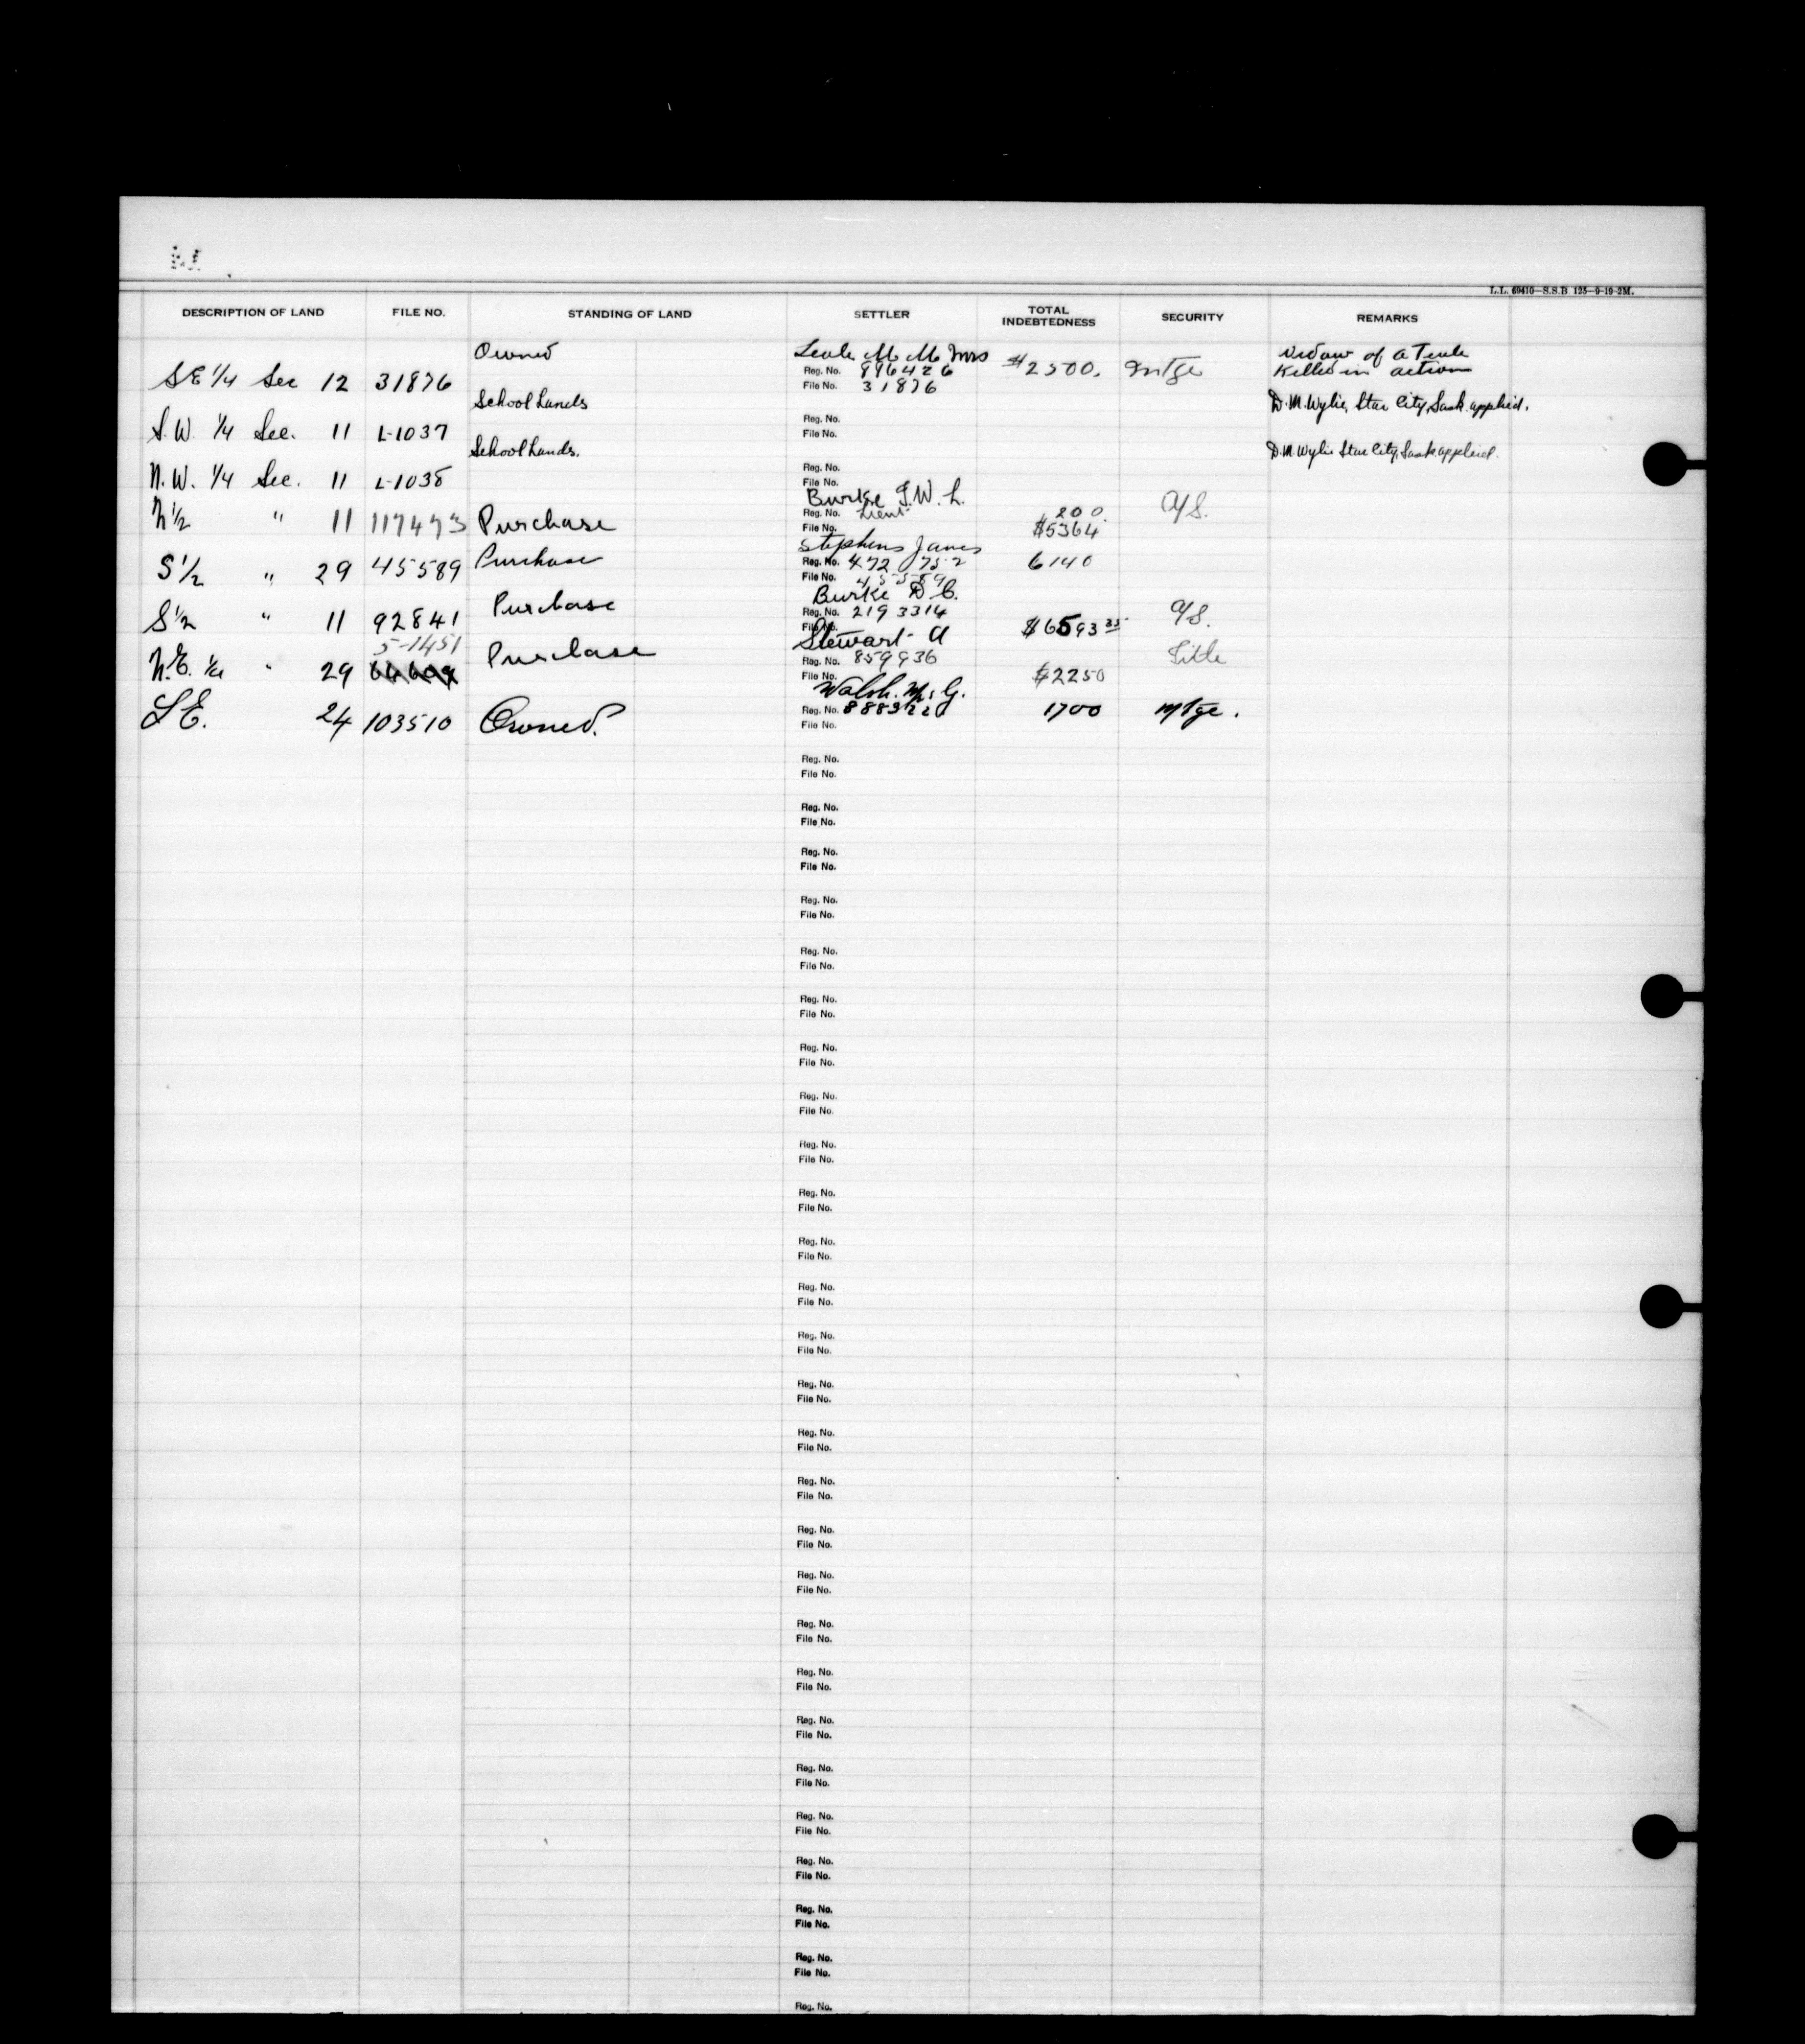 L.L. 69410—S.S.B. 125—9-19-2M.
DESCRIPTION OF LAND FILE NO. STANDING OF LAND SETTLER TOTAL INDEBTEDNESS SECURITY REMARKS
Owned M. M. Mrs Widow of A
SE 1/4 Sec 12 31876 Reg. No. 886426 $2500. Mtge Killed in action
File No. 31876
School Lands D. M. Wylie, Star City, Sask. applied.
S.W. 1/4 Sec. 11 L-1037 Reg. No.
File No.
School Lands. D. M. Wylie Star City, Sask. applied.
N.W. 1/4 Sec. 11 L-1038 Reg. No.
File No.
Burke J. W. L.
N 1/2 " 11 117473 Purchase Reg. No. Lieut 200. A/S.
File No. $5364
Stephens James
S 1/2 " 29 45589 Purchase Reg. No. 472752 6140
File No. 45589
Burke D. C.
S 1/2 " 11 92841 Purchase Reg. No. 2193314 $6593 35 A/S.
File No.
5-1451 Stewart A
N.E. 1/4 " 29 Purchase Reg. No. 859936 $2250 Title
File No.
Walsh. M. G.
S E. 24 103510 Owned. Reg. No. 888922 1700 Mtge.
File No.
Reg. No.
File No.
Reg. No.
File No.
Reg. No.
File No.
Reg. No.
File No.
Reg. No.
File No.
Reg. No.
File No.
Reg. No.
File No.
Reg. No.
File No.
Reg. No.
File No.
Reg. No.
File No.
Reg. No.
File No.
Reg. No.
File No.
Reg. No.
File No.
Reg. No.
File No.
Reg. No.
File No.
Reg. No.
File No.
Reg. No.
File No.
Reg. No.
File No.
Reg. No.
File No.
Reg. No.
File No.
Reg. No.
File No.
Reg. No.
File No.
Reg. No.
File No.
Reg. No.
File No.
Reg. No.
File No.
Reg. No.
File No.
Reg. No.